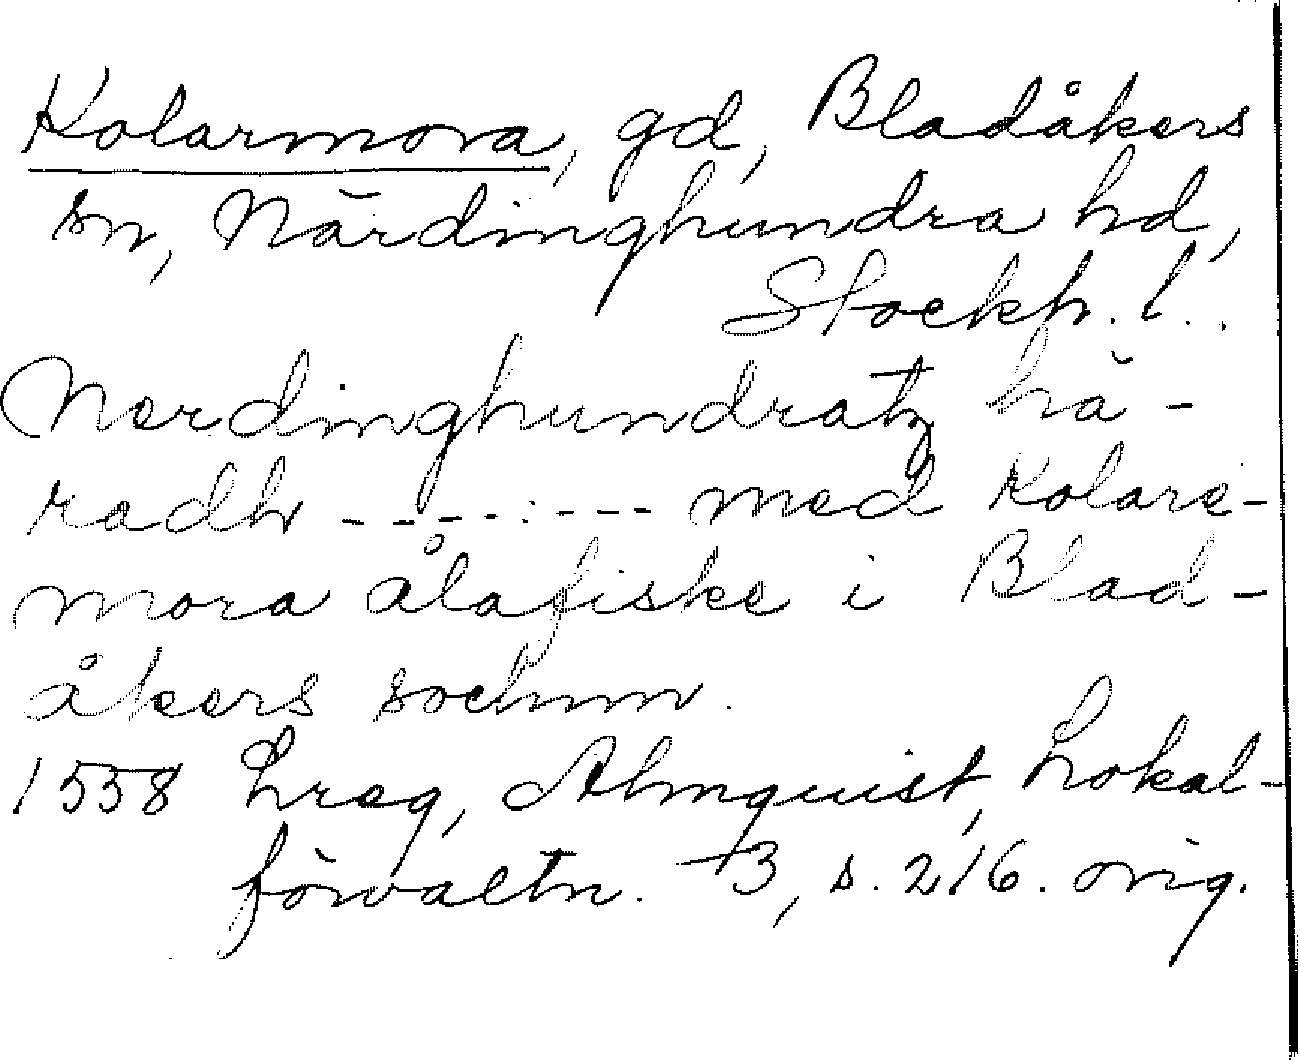 Kolarmora, gd, Bladåkers
sn, Närdinghundra hd,
Stockh. l.
Nerdinghundratz hä-
radh --------- med Kolare-
mora ålafiske i Blad-
åkers sochnn.
1558 Lreg, Almquist, Lokal-
förvaltn. 3, s. 216. orig.